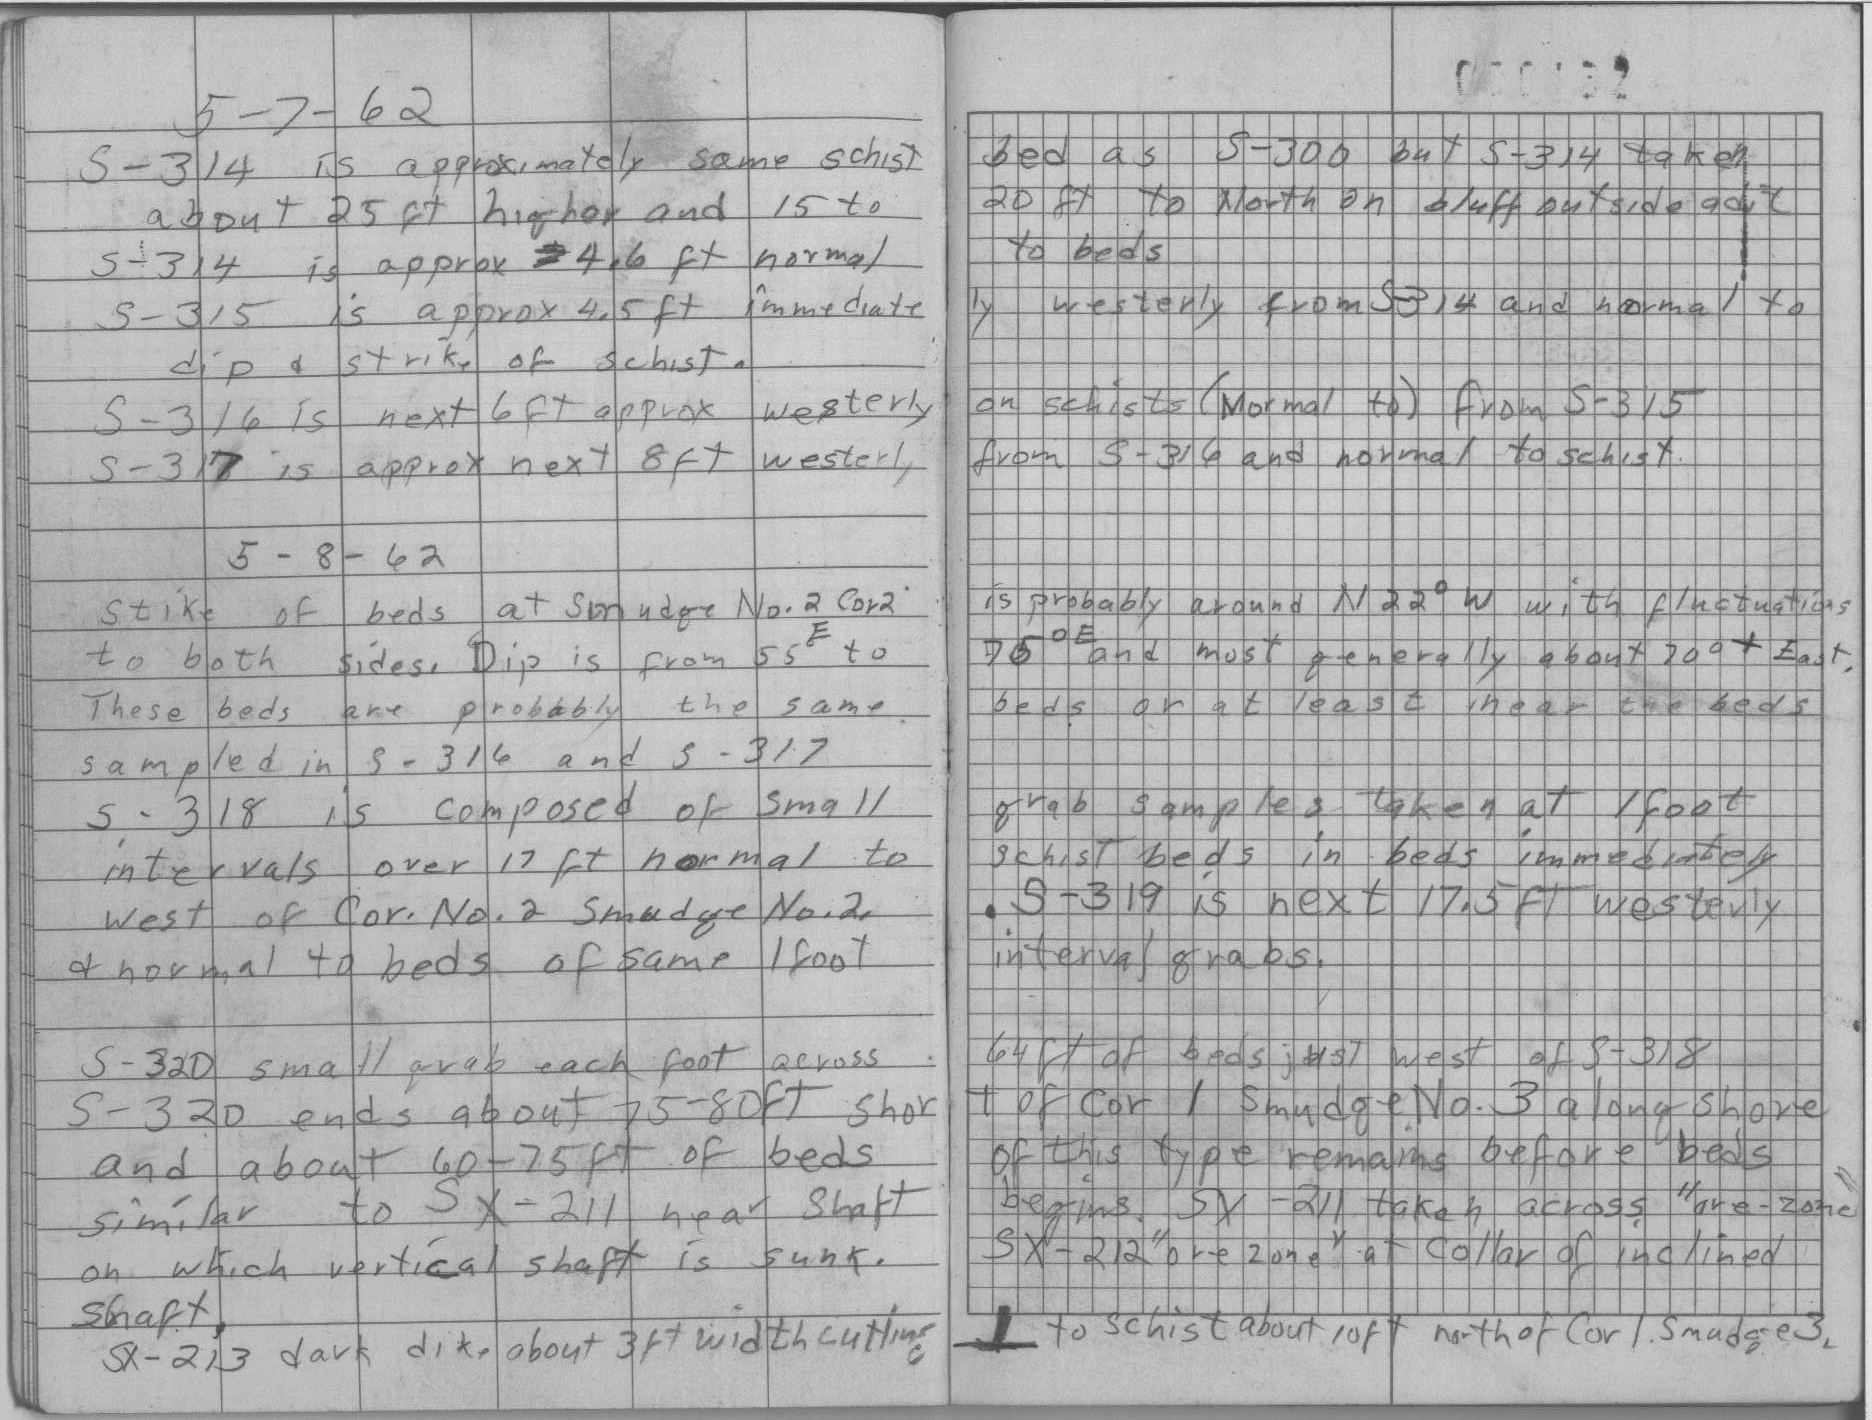 000132
5-7-62
S-314 is approximately same schist bed as S-300 but S-314 taken
about 25 ft higher and 15 to 20 ft to North on bluff outside adit
S-314 is approx 4.6 ft normal to beds
S-315 is approx 4.5 ft immediately westerly from S-314 and normal to
dip & strike of schist.
S-316 is next 6 ft approx westerly on schists (Normal to) from S-315
S-317 is approx next 8 ft westerly from S-316 and normal to schist.
5-8-62
Stike of beds at Smudge No. 2 Cor 2 is probably around N 22° W with fluctuations
to both sides. Dip is from 55 E to 75° E and most generally about 70°+ East.
These beds are probably the same beds or at least near the beds
sampled in S-316 and S-317
S-318 is composed of small grab samples taken at 1 foot
intervals over 17 ft normal to schist beds in beds immediately
west of Cor. No. 2 Smudge No. 2. S-319 is next 17.5 ft westerly
& normal to beds of same 1 foot interval grabs.
S-320 small grab each foot across 64 ft of beds just west of S-318
S-320 ends about 75-80 ft short of Cor 1 Smudge No. 3 along shore
and about 60-75 ft of beds of this type remains before beds
similar to SX-211 near shaft begins. SX-211 taken across "ore-zone"
on which vertical shaft is sunk. SX-212 "ore zone" at collar of inclined
shaft.
SX-213 dark dike about 3 ft width cutting ⊥ to schist about 10 ft north of Cor 1. Smudge 3.